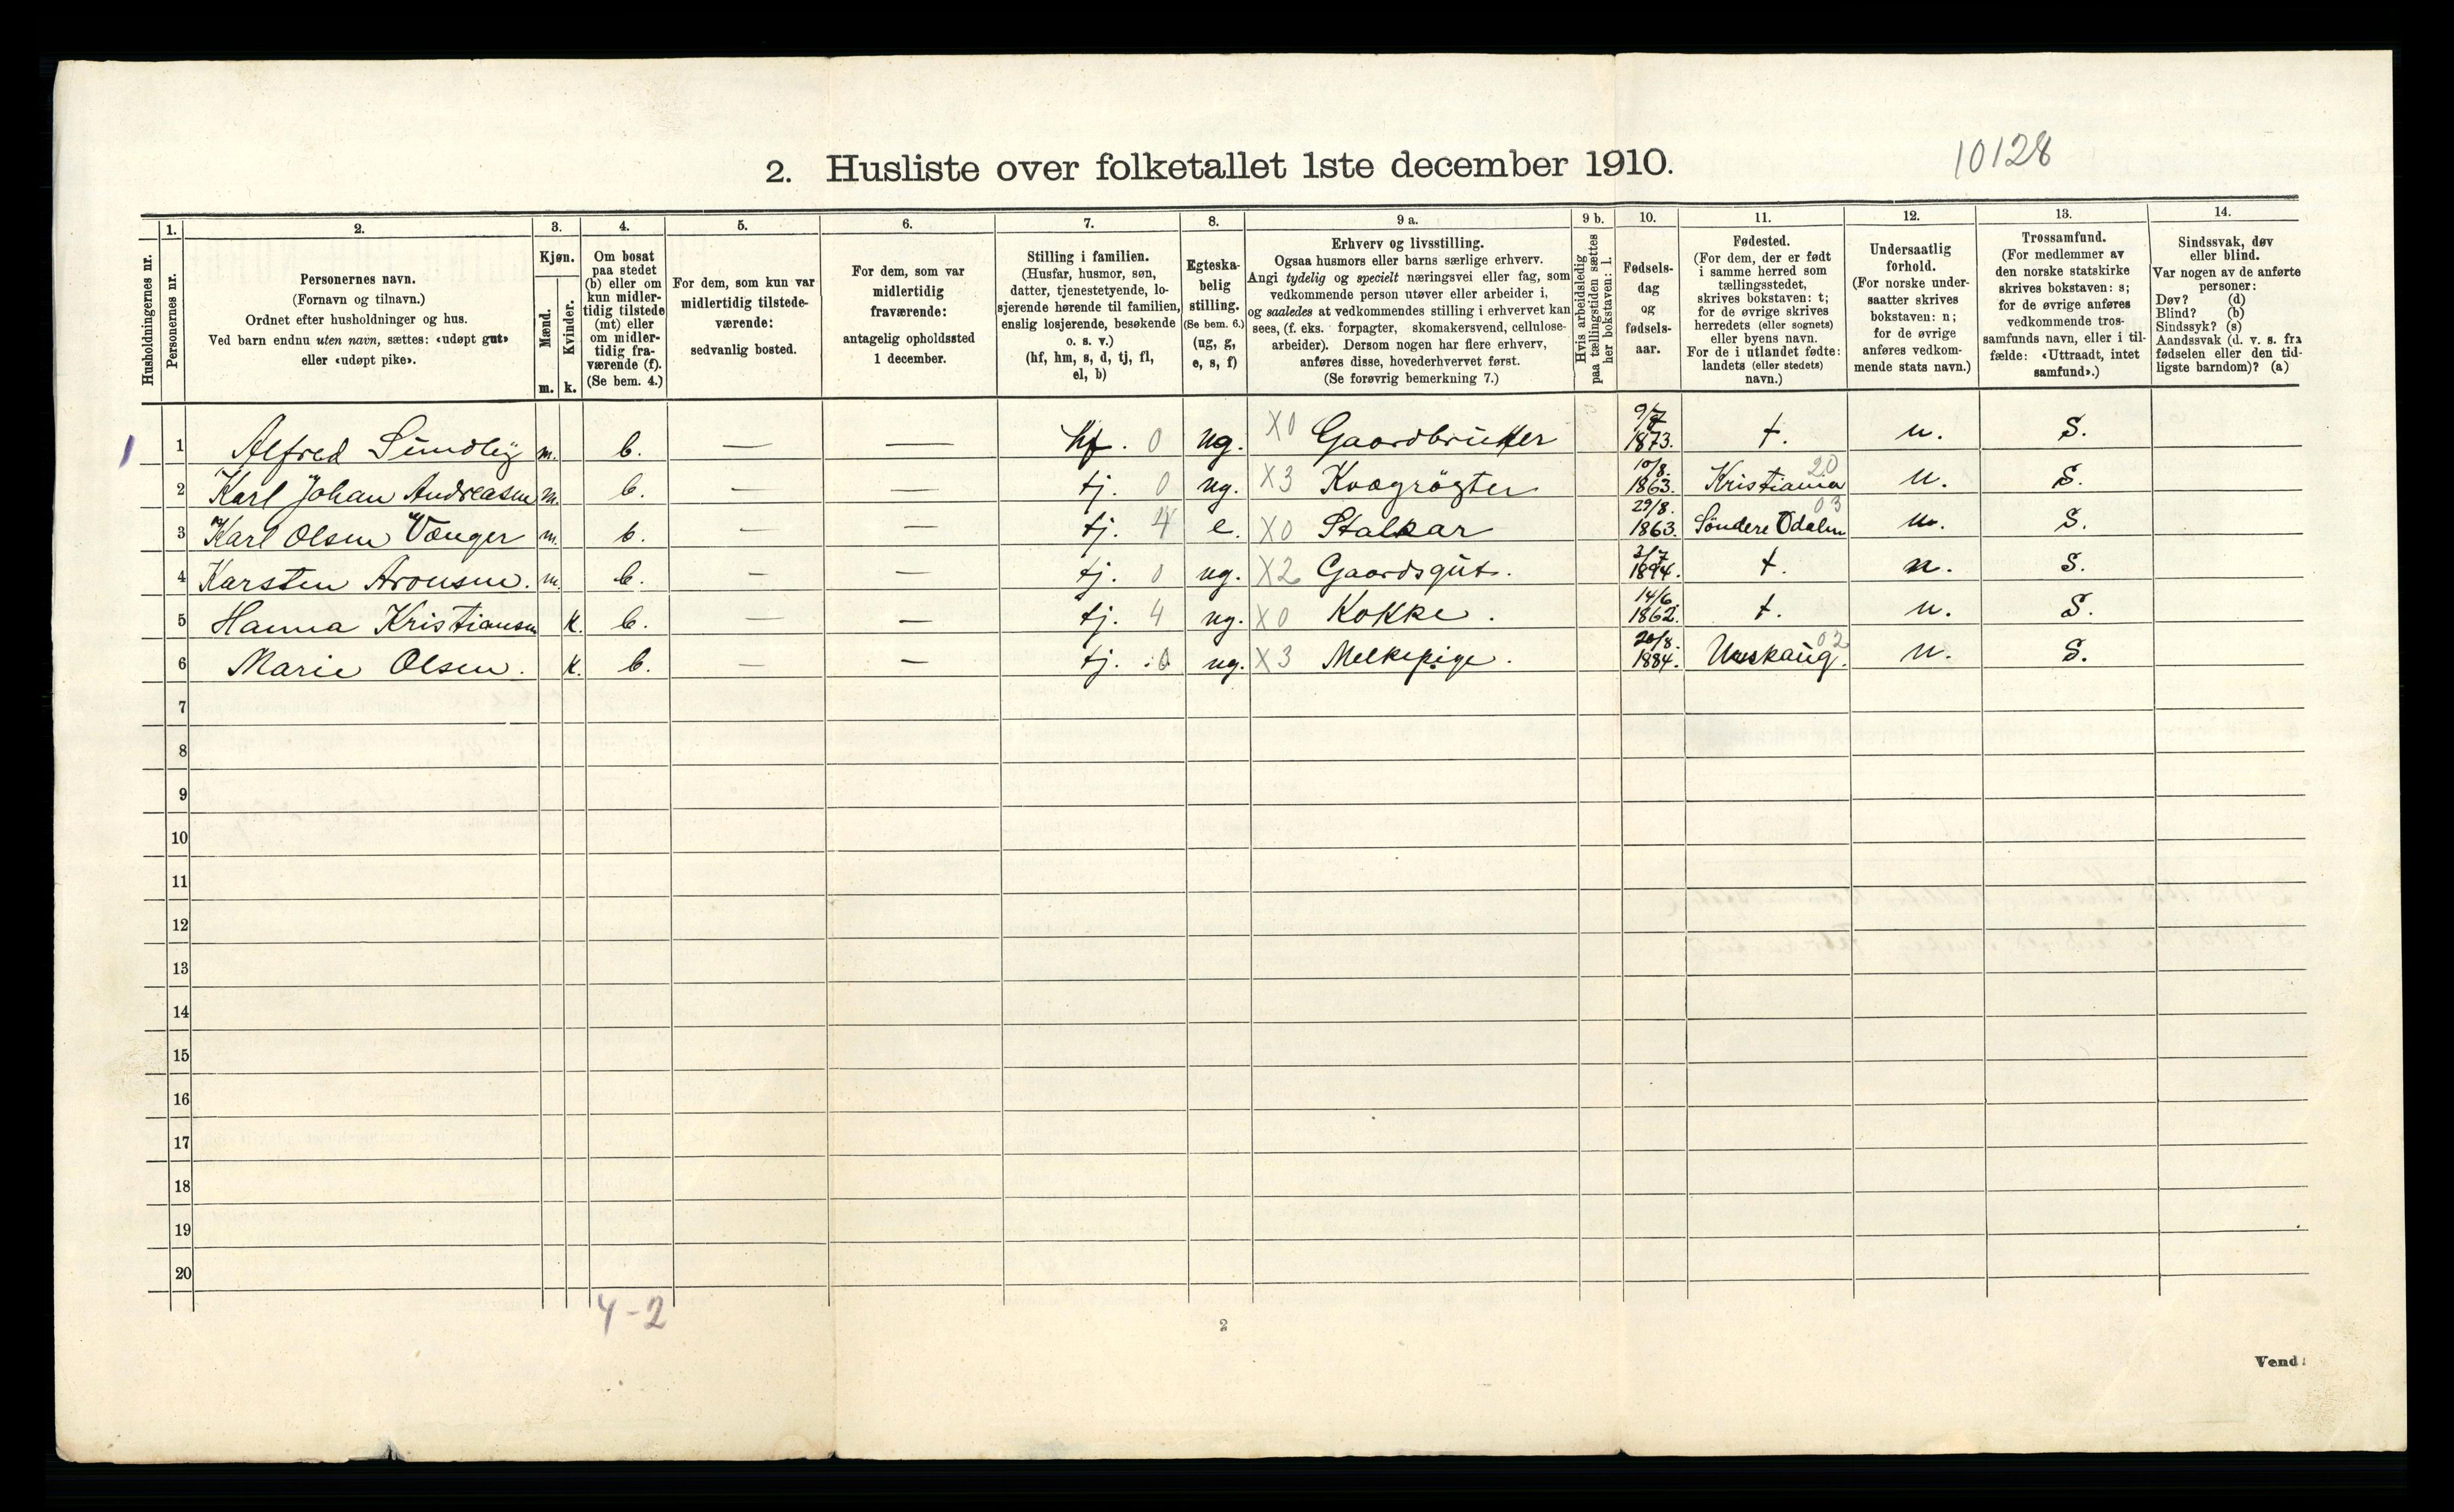 10128
2. Husliste over folketallet 1ste december 1910.
Husholdningernes nr.
1.
Personernes nr.
2.
Personernes navn.
(Fornavn og tilnavn.)
Ordnet efter husholdninger og hus.
Ved barn endnu uten navn, sættes: «udøpt gut»
eller «udøpt pike».
3.
Kjøn.
Mænd.
Kvinder.
m. k.
4.
Om bosat
paa stedet
(b) eller om
kun midler-
tidig tilstede
(mt) eller
om midler-
tidig fra-
værende (f).
(Se bem. 4.)
5.
For dem, som kun var
midlertidig tilstede-
værende:
sedvanlig bosted.
6.
For dem, som var
midlertidig
fraværende:
antagelig opholdssted
1 december.
7.
Stilling i familien.
(Husfar, husmor, søn,
datter, tjenestetyende, lo-
sjerende hørende til familien,
enslig losjerende, besøkende
o. s. v.)
(hf, hm, s, d, tj, fl,
el, b)
8.
Egteska-
belig
stilling.
(Se bem. 6.)
(ug, g,
e, s, f)
9 a.
Erhverv og livsstilling.
Ogsaa husmors eller barns særlige erhverv.
Angi tydelig og specielt næringsvei eller fag, som
vedkommende person utøver eller arbeider i,
og saaledes at vedkommendes stilling i erhvervet kan
sees, (f. eks. forpagter, skomakersvend, cellulose-
arbeider). Dersom nogen har flere erhverv,
anføres disse, hovederhvervet først.
(Se forøvrig bemerkning 7.)
9 b.
Hvis arbeidsledig
paa tællingstiden sættes
her bokstaven: l.
10.
Fødsels-
dag
og
fødsels-
aar.
11.
Fødested.
(For dem, der er født
i samme herred som
tællingsstedet,
skrives bokstaven: t;
for de øvrige skrives
herredets (eller sognets)
eller byens navn.
For de i utlandet fødte:
landets (eller stedets)
navn.)
12.
Undersaatlig
forhold.
(For norske under-
saatter skrives
bokstaven: n;
for de øvrige
anføres vedkom-
mende stats navn.)
13.
Trossamfund.
(For medlemmer av
den norske statskirke
skrives bokstaven: s;
for de øvrige anføres
vedkommende tros-
samfunds navn, eller i til-
fælde: «Uttraadt, intet
samfund».)
14.
Sindssvak, døv
eller blind.
Var nogen av de anførte
personer:
Døv? (d)
Blind? (b)
Sindssyk? (s)
Aandssvak (d. v. s. fra
fødselen eller den tid-
ligste barndom)? (a)
1 1 Alfred Sundby m. b. — — hf. 0 ug. X0 Gaardbruker 1873. t. n. S.
2 Karl Johan Andreasen m. b. — — tj. 0 ug. X3 Kvægrøgter 10/8. 1863. Kristiania 20 n. S.
3 Karl Olsen Vænger m. b. — — tj. 4 e. X0 Stalkar 29/8. 1863. Søndere Odalen 03 n. S.
4 Karsten Aronsen. m. b. — — tj. 0 ug. X2 Gaardsgut. 3/7 1894. t. n. S.
5 Hanna Kristiansen k. b. — — tj. 4 ug. X0 Kokke. 14/6. 1862. t. n. S.
6 Marie Olsen. k. b. — — tj. 0 ug. X3 Melkepige. 20/8. 1884. Urskaug. 02 n. S.
7
8
9
10
11
12
13
14
15
16
17
18
19
20
4-2
2
Vend!